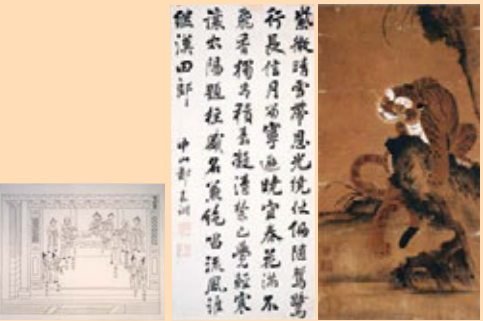 紫微晴雪帶恩光繞仗偏隨鴛鷺
行長信月留寧避曉宜春花滿不
飛香獨看積素凝清禁已覺輕寒
讓太陽題柱盛名兼絕唱流風誰
繼漢田郎
中山鄭嘉訓